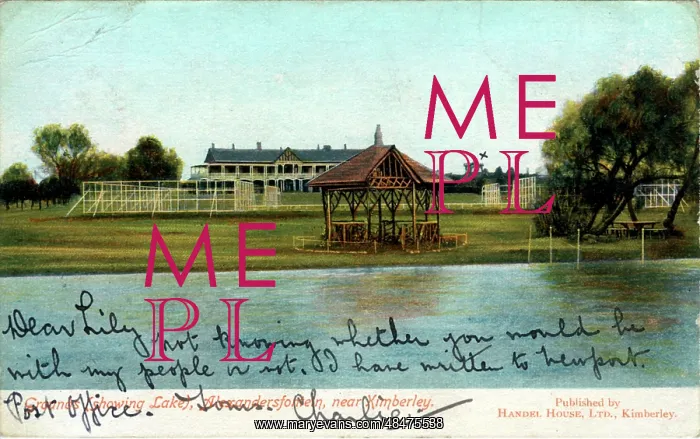 ME
PL
ME
PL
Dear Lily, not knowing whether you would be
with my people or not. I have written to Newport.
Grounds (showing Lake), Alexandersfontein, near Kimberley.
Published by
HANDEL HOUSE, LTD., Kimberley.
Post Office. Yours. Charlie.
www.maryevans.com/48475598